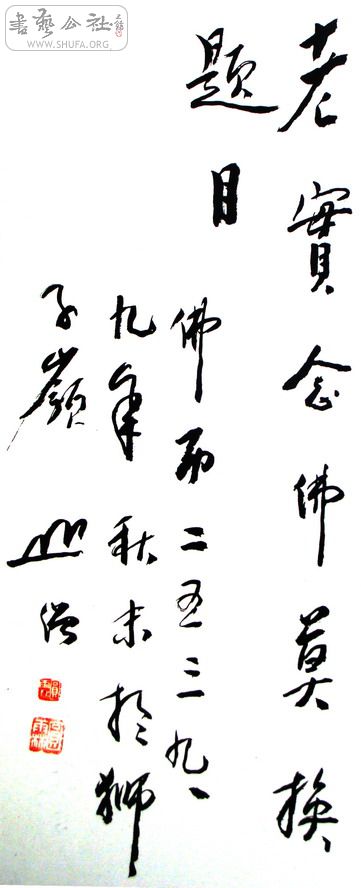 書藝公社
WWW.SHUFA.ORG
老實念佛莫換
題目
佛二五三九
九年秋末於獅
子嶺 僧